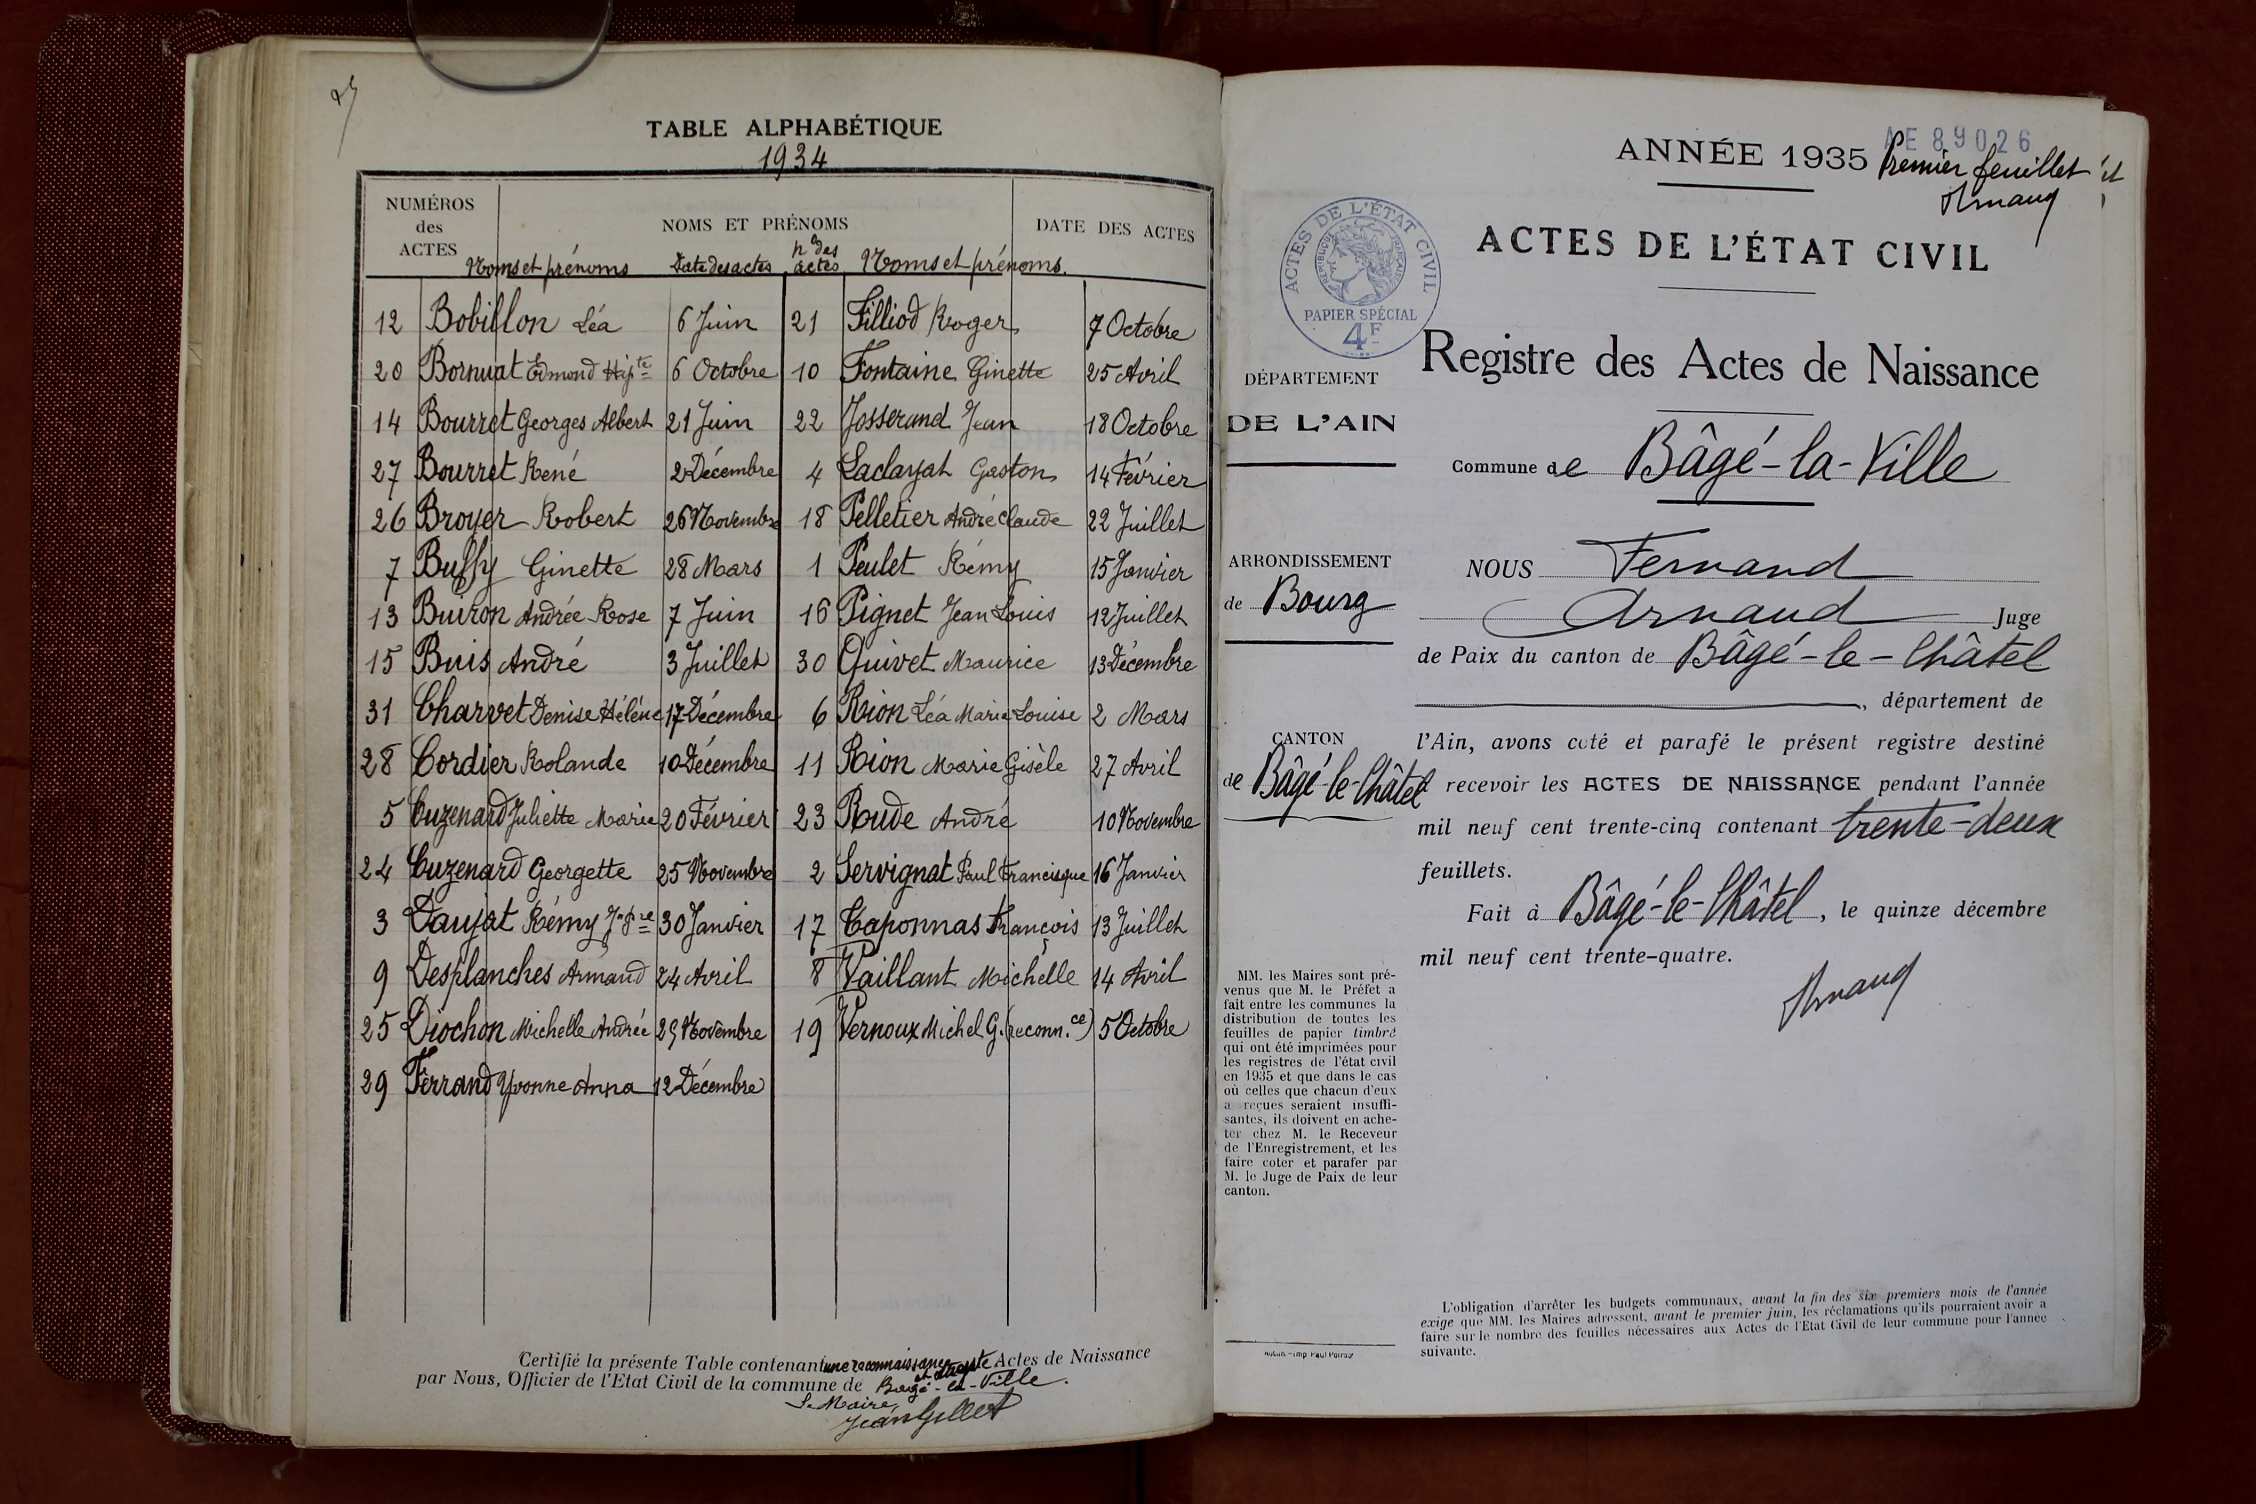 TABLE ALPHABÉTIQUE
1934
NUMÉROS des ACTES
NOMS ET PRÉNOMS
DATE DES ACTES
Noms et prénoms Date des actes nos des actes Noms et prénoms.
12 Bobillon Léa 6 Juin
20 Bornuat Edmond Hipte 6 Octobre
14 Bourret Georges Albert 21 Juin
27 Bourret René 2 Décembre
26 Broyer Robert 26 Novembre
7 Buffy Ginette 28 Mars
13 Buiron Andrée Rose 7 Juin
15 Buis André 3 Juillet
31 Charvet Denise Hélène 17 Décembre
28 Cordier Rolande 10 Décembre
5 Cuzenard Juliette Marie 20 Février
24 Cuzenard Georgette 25 Novembre
3 Daujat Rémy Jn Pre 30 Janvier
9 Desplanches Armand 24 Avril
25 Diochon Michelle Andrée 25 Novembre
29 Ferrand Yvonne Anna 12 Décembre
21 Filliod Roger 7 Octobre
10 Fontaine Ginette 25 Avril
22 Josserand Jean 18 Octobre
4 Laclayat Gaston 14 Février
18 Pelletier André Claude 22 Juillet
1 Peulet Rémy 15 Janvier
16 Pignet Jean Louis 12 Juillet
30 Quivet Maurice 13 Décembre
6 Rion Léa Marie Louise 2 Mars
11 Rion Marie Gisèle 27 Avril
23 Rude André 10 Novembre
2 Servignat Paul Francisque 16 Janvier
17 Taponnas François 13 Juillet
8 Vaillant Michelle 14 Avril
19 Vernoux Michel G. (reconn.ce) 5 Octobre
Certifié la présente Table contenant une reconnaissance et trente Actes de Naissance
par Nous, Officier de l'Etat Civil de la commune de Bâgé-la-Ville.
Le Maire,
Jean Gillet
ANNÉE 1935
AE 89026
Premier feuillet
Arnaud
ACTES DE L'ÉTAT CIVIL
ACTES DE L'ÉTAT CIVIL
RÉPUBLIQUE FRANÇAISE
PAPIER SPÉCIAL
4F
Registre des Actes de Naissance
DÉPARTEMENT
DE L'AIN
Commune de Bâgé-la-Ville
ARRONDISSEMENT
de Bourg
CANTON
de Bâgé-le-Châtel
NOUS Fernand
Arnaud Juge
de Paix du canton de Bâgé-le-Châtel
, département de
l'Ain, avons coté et parafé le présent registre destiné
recevoir les ACTES DE NAISSANCE pendant l'année
mil neuf cent trente-cinq contenant trente-deux
feuillets.
Fait à Bâgé-le-Châtel, le quinze décembre
mil neuf cent trente-quatre.
Arnaud
MM. les Maires sont pré-
venus que M. le Préfet a
fait entre les communes la
distribution de toutes les
feuilles de papier timbré
qui ont été imprimées pour
les registres de l'état civil
en 1935 et que dans le cas
où celles que chacun d'eux
a reçues seraient insuffi-
santes, ils doivent en ache-
ter chez M. le Receveur
de l'Enregistrement, et les
faire coter et parafer par
M. le Juge de Paix de leur
canton.
Autun. - Imp. Paul Poirault
L'obligation d'arrêter les budgets communaux, avant la fin des six premiers mois de l'année
exige que MM. les Maires adressent, avant le premier juin, les réclamations qu'ils pourraient avoir a
faire sur le nombre des feuilles nécessaires aux Actes de l'Etat Civil de leur commune pour l'année
suivante.